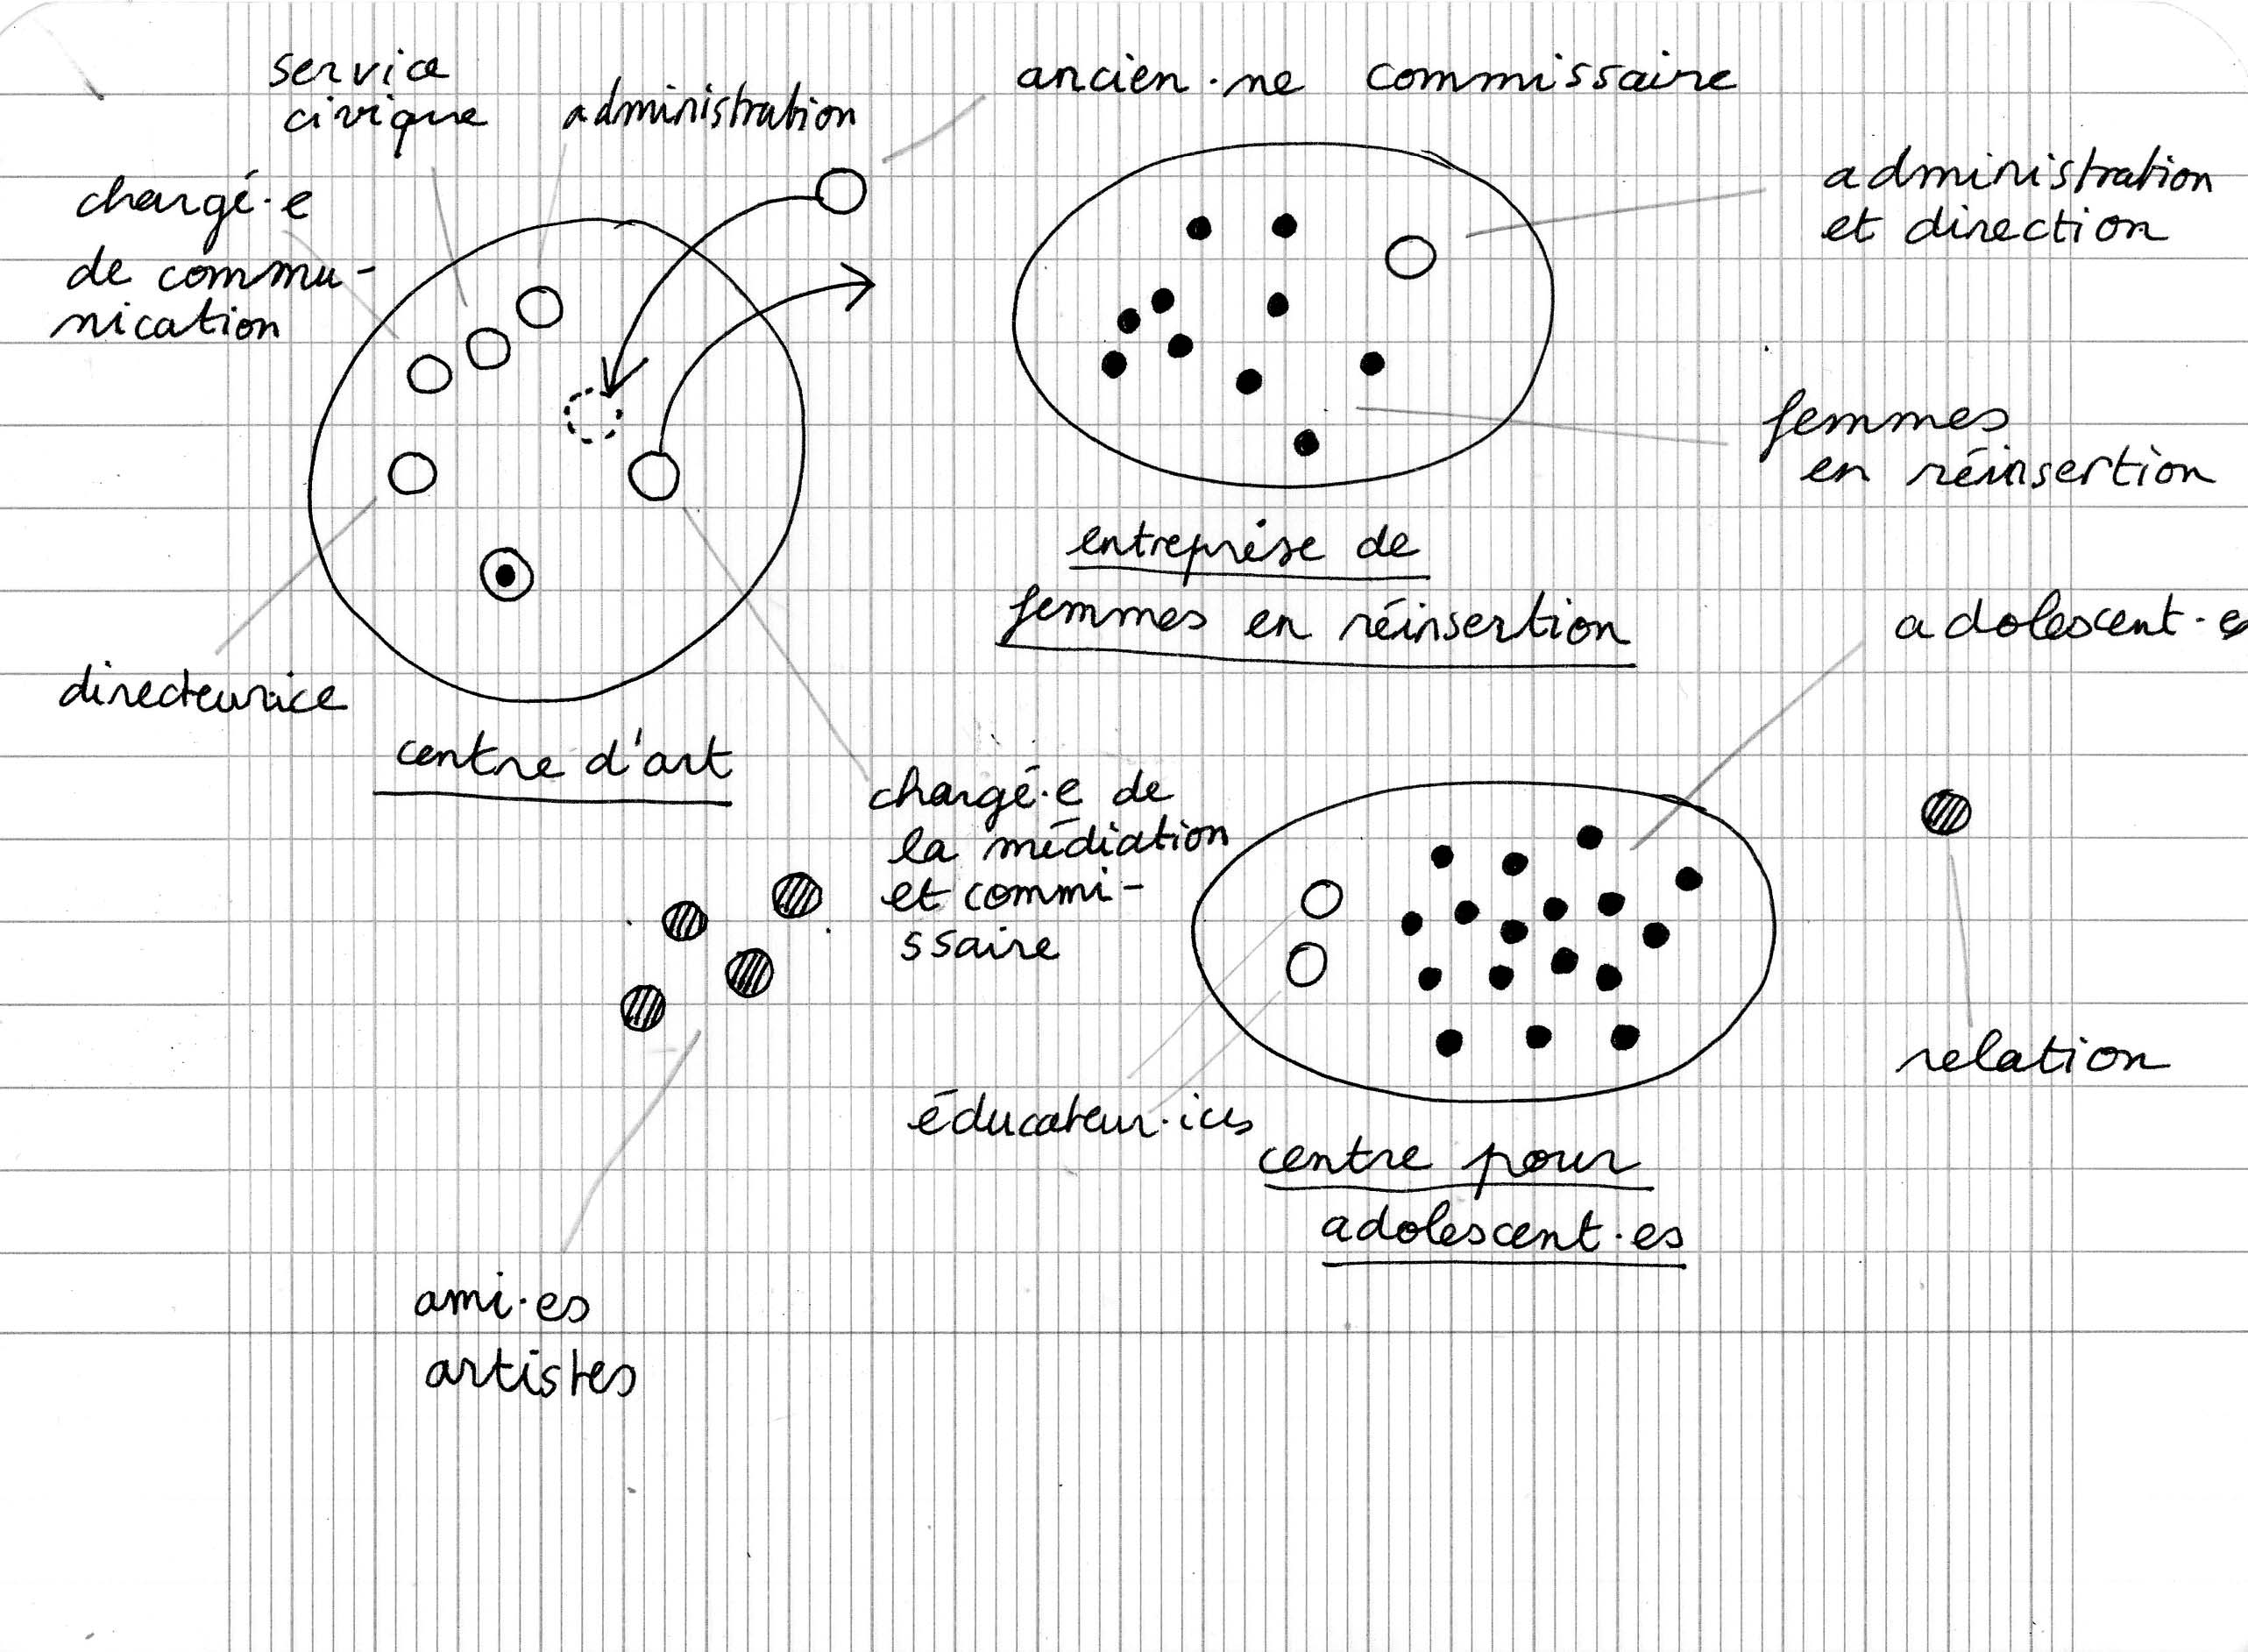 service
civique
administration
ancien·ne commissaire
chargé·e
de commu-
nication
administration
et direction
femmes
en réinsertion
entreprise de
femmes en réinsertion
adolescent·es
directeurice
centre d'art
chargé·e de
la médiation
et commi-
ssaire
relation
éducateur·ices
centre pour
adolescent·es
ami·es
artistes